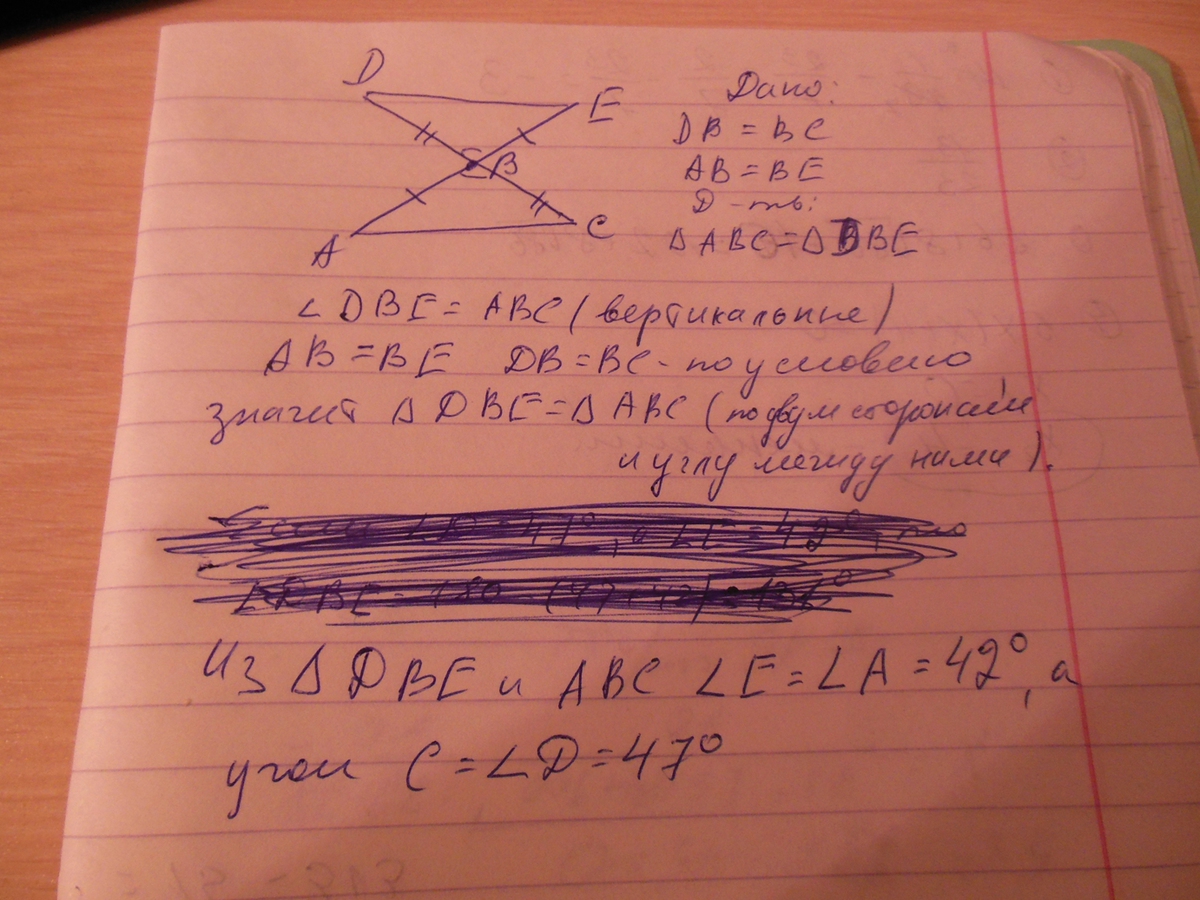 D
E
B
A
C
Дано:
DB = BC
AB = BE
Д-ть:
Δ ABC = Δ DBE
∠ DBE = ABC (вертикальные)
AB = BE DB = BC - по условию
значит Δ DBE = Δ ABC (по двум сторонам
и углу между ними).
∠D = 47°, а ∠E = 42°, то
∠DBE = 180 - (47+42) =
Из Δ DBE и ABC ∠E = ∠A = 42°, а
угол C = ∠D = 47°